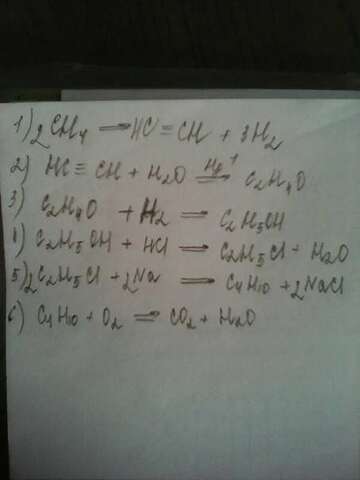 1) 2CH4 ⟶ HC≡CH + 3H2
2) HC≡CH + H2O =Hg= C2H4O
3) C2H4O + H2 = C2H5OH
4) C2H5OH + HCl = C2H5Cl + H2O
5) 2C2H5Cl + 2Na = C4H10 + 2NaCl
6) C4H10 + O2 = CO2 + H2O